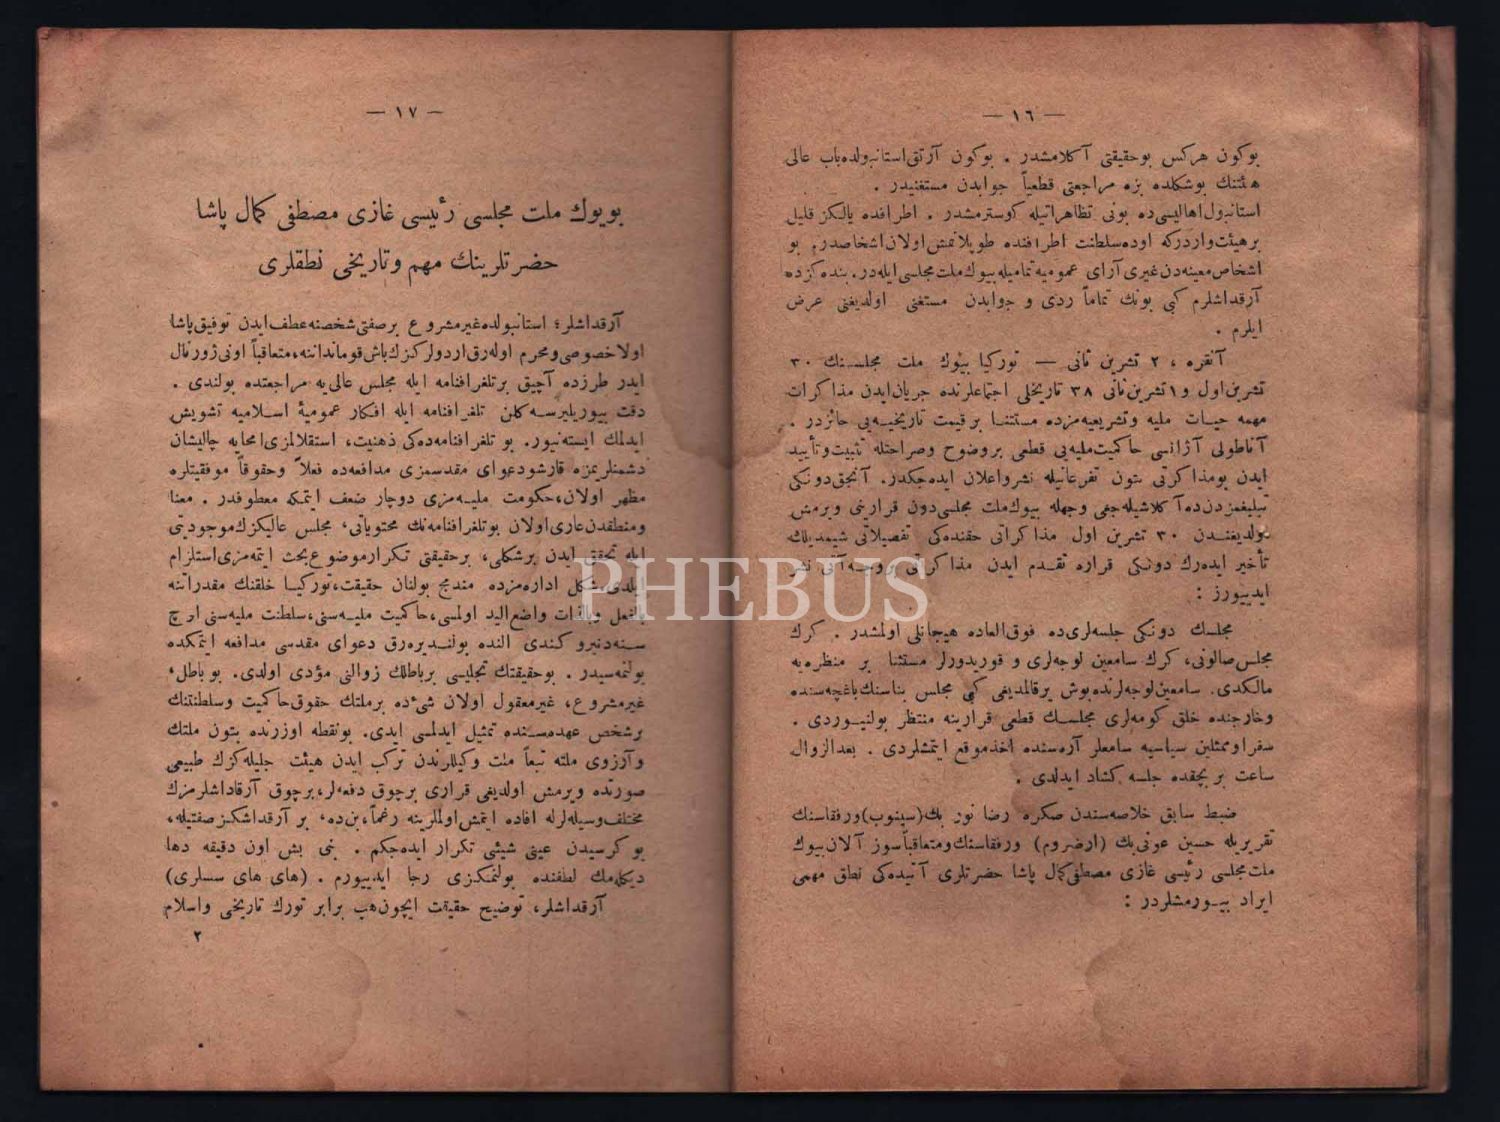 — ١٦ —
بوكون هركس بوحقيقتى آكلامشدر . بوكون آرتق استانبولده باب عالى
هئتنك بوشكلده بزه مراجعتى قطعياً جوابدن مستغنيدر .
استانبول اهاليسى ده بونى تظاهراتيله كوسترمشدر . اطرافده يالكز قليل
برهيئت واردركه اوده سلطنت اطرافنده طوپلانمش اولان اشخاصدر. بو
اشخاص معينه دن غيرى آراى عموميه تماميله بيوك ملت مجلسى ايله در. بنده كزده
آرقداشلرم كبى بونك تماماً ردى و جوابدن مستغنى اولديغنى عرض
ايلرم .
آنقره ، ٢ تشرين ثانى — توركيا بيوك ملت مجلسنك ٣٠
تشرين اول و ١ تشرين ثانى ٣٨ تاريخلى اجتماعلرنده جريان ايدن مذاكرات
مهمه حيات مليه و تشريعيه مزده مستثنا برقيمت تاريخيه يى حائزدر .
آناطولى آژانسى حاكميت مليه يى قطعى بروضوح وصراحتله تثبيت و تأييد
ايدن بومذاكرتى بتون تفرعاتيله نشر واعلان ايده جكدر. آنجق دونكى
تبليغمزدن ده آكلاشيله جغى وجهله بيوك ملت مجلسى دون قرارينى ويرمش
بولديغندن ٣٠ تشرين اول مذاكراتى حقنده كى تفصيلاتى شيمديلك
تأخير ايده رك دونكى قراره تقدم ايدن مذاكراتى بروجه آتى نشر
ايدييورز :
مجلسك دونكى جلسه لرى ده فوق العاده هيجانلى اولمشدر . كرك
مجلس صالونى، كرك سامعين لوجه لرى و قوريدورلر مستثنا بر منظره يه
مالكدى. سامعين لوجه لرنده بوش يرقالمديغى كبى مجلس بناسنك باغچه سنده
وخارجنده خلق كومه لرى مجلسك قطعى قرارينه منتظر بولنيوردى .
سفرا وممثلين سياسيه سامعلر آره سنده اخذ موقع ايتمشلردى . بعدالزوال
ساعت بر بچقده جلسه كشاد ايدلدى .
ضبط سابق خلاصه سندن صكره رضا نور بك (سينوب) ورفقاسنك
تقريريله حسين عونى بك (ارضروم) ورفقاسنك ومتعاقباً سوز آلان بيوك
ملت مجلسى رئيسى غازى مصطفى كمال پاشا حضرتلرى آتيده كى نطق مهمى
ايراد بيورمشلردر :
— ١٧ —
بويوك ملت مجلسى رئيسى غازى مصطفى كمال پاشا
حضرتلرينك مهم وتاريخى نطقلرى
آرقداشلر؛ استانبولده غيرمشروع برصفتى شخصنه عطف ايدن توفيق پاشا
اولا خصوصى ومحرم اوله رق اردولركزك باش قوماندانه، متعاقباً اونى ژورنال
ايدر طرزده آچيق برتلغرافنامه ايله مجلس عالى يه مراجعتده بولندى .
دقت بيوريليرسه كلن تلغرافنامه ايله افكار عموميۀ اسلاميه تشويش
ايدلمك ايسته نيور. بو تلغرافنامه ده كى ذهنيت، استقلالمزى امحايه چاليشان
دشمنلريمزه قارشو دعواى مقدسمزى مدافعه ده فعلاً وحقوقاً موفقيتلره
مظهر اولان، حكومت مليه مزى دوچار ضعف ايتمكه معطوفدر . معنا
ومنطقدن عارى اولان بوتلغرافنامه نك محتوياتى، مجلس عاليكزك موجوديتى
ايله تحقق ايدن برشكلى، برحقيقتى تكرار موضوع بحث ايتمه مزى استلزام
ايلدى. شكل اداره مزده مندمج بولنان حقيقت، توركيا خلقنك مقدراتنه
بالفعل وبالذات واضع اليد اولمسى، حاكميت مليه سنى، سلطنت مليه سنى اوچ
سنه دنبرو كندى النده بولنديره رق دعواى مقدسى مدافعه ايتمكده
بولنمه سيدر . بوحقيقتك تجليسى برباطلك زوالنى مؤدى اولدى. بو باطل،
غيرمشروع، غيرمعقول اولان شىء ده برملتك حقوق حاكميت وسلطنتنك
برشخص عهده سنده تمثيل ايدلمسى ايدى. بونقطه اوزرنده بتون ملتك
و آرزوى ملته تبعاً ملت وكيللرندن تركب ايدن هيئت جليله كزك طبيعى
صورتده ويرمش اولديغى قرارى برچوق دفعه لر، برچوق آرقداشلرمزك
مختلف وسيله لرله افاده ايتمش اولملرينه رغماً، بن ده، بر آرقداشكز صفتيله،
بو كرسيدن عينى شيئى تكرار ايده جكم . بنى بش اون دقيقه دها
ديكله مك لطفنده بولنمكزى رجا ايدييورم . (هاى هاى سسلرى)
آرقداشلر، توضيح حقيقت ايچون هپ برابر تورك تاريخى واسلام
٢
PHEBUS